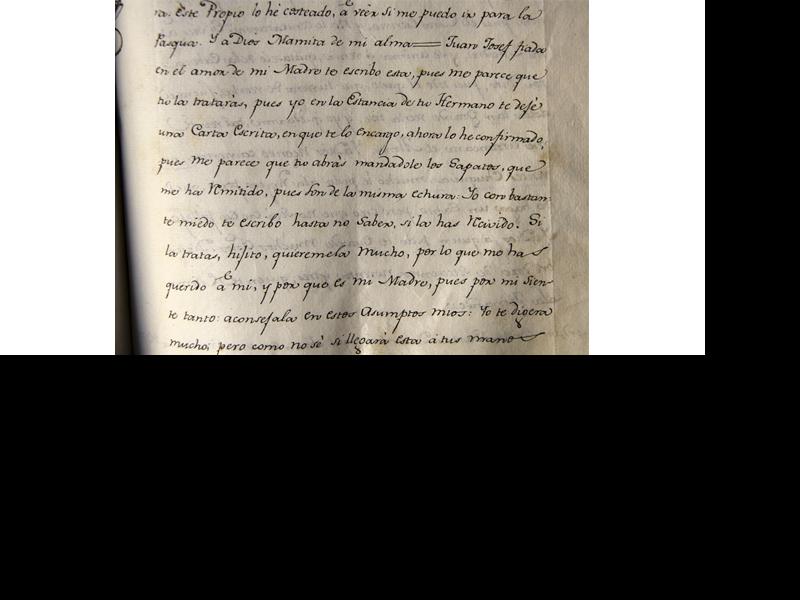 ra. Este Propio lo hé costeado, â veèr si me puedo ir para la
Pasqua. Y a Dios Mamita de mi alma = Juan Josef fiada
en el amor de mi Madre te escribo esta, pues me parece que
tu la tratarás, pues yo en la Estancia de tu Hermano te dejé
una Carta Escrita, en que te lo encargo, ahora lo he confirmado,
pues me parece que tu abrás mandadole los Sapatos, que
me ha Remitido, pues son de la misma echura: Yo con bastan-
te miedo te escribo hasta no Saber, si la has Recivido. Si
la tratas, hijito, quieremela mucho, por lo que me ha
querido â mi, y por que es mi Madre, pues por mi Sien-
te tanto: aconsejala en estos Asumptos mios: Yo te digera
mucho, pero como no sé si llegará esta á tus manos